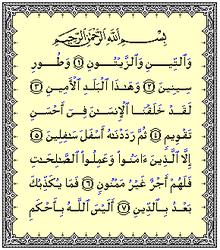 بِسْمِ اللَّهِ الرَّحْمَٰنِ الرَّحِيمِ
وَٱلتِّينِ وَٱلزَّيْتُونِ ١ وَطُورِ
سِينِينَ ٢ وَهَٰذَا ٱلْبَلَدِ ٱلْأَمِينِ ٣
لَقَدْ خَلَقْنَا ٱلْإِنسَٰنَ فِىٓ أَحْسَنِ
تَقْوِيمٍ ٤ ثُمَّ رَدَدْنَٰهُ أَسْفَلَ سَٰفِلِينَ ٥
إِلَّا ٱلَّذِينَ ءَامَنُوا۟ وَعَمِلُوا۟ ٱلصَّٰلِحَٰتِ
فَلَهُمْ أَجْرٌ غَيْرُ مَمْنُونٍ ٦ فَمَا يُكَذِّبُكَ
بَعْدُ بِٱلدِّينِ ٧ أَلَيْسَ ٱللَّهُ بِأَحْكَمِ